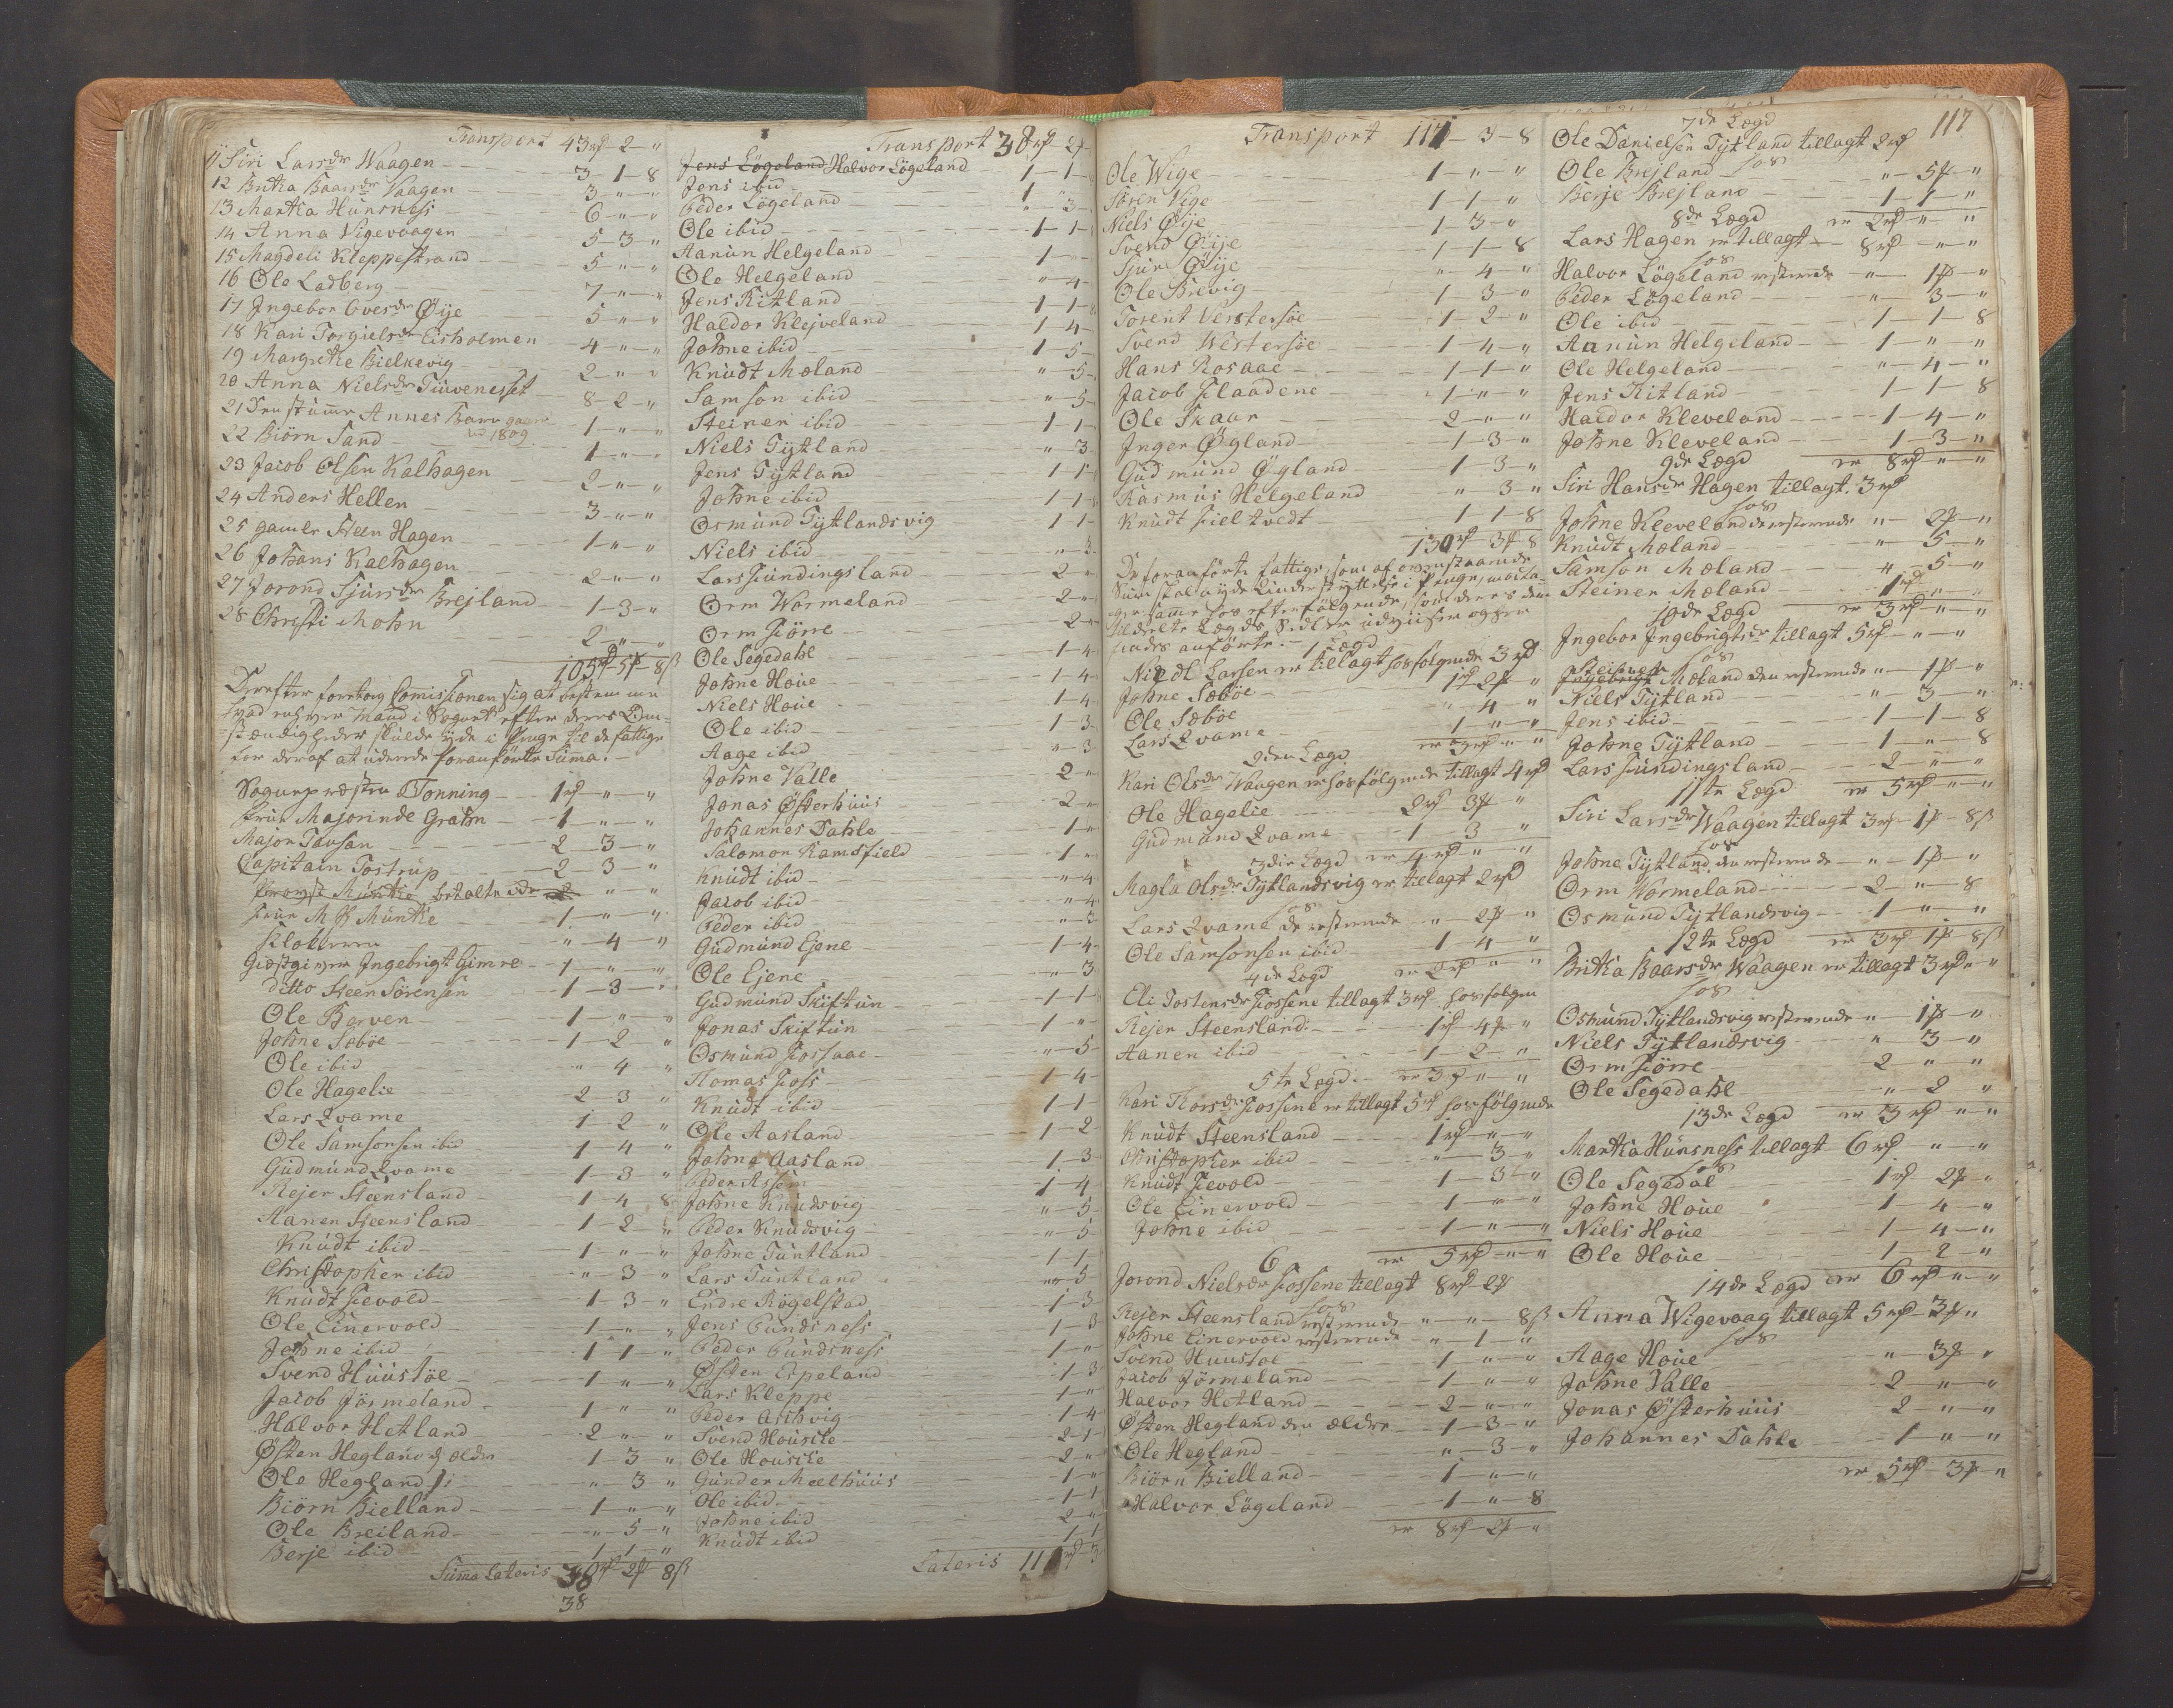 Transport 43rd 2 "
11 Siri Larsdr Waagen 3-1-8
12 Britha Baarsdr Vaagen 3-"-"
13 Martha Hunsness 6-"-"
14 Anna Vigevaagen 5-3-"
15 Magdeli Kleppestrand 5-"-"
16 Ole Ladberg 7-"-"
17 Ingebor Ovesdr Øÿe 5-"-"
18 Kari Torgielsdr Eisholmen 4-"-"
19 Margrethe Bielkevig 2-"-"
20 Anna Nielsdr Tuvenesset 8-2-"
21 Den stumme Annes Barn 1-"-"
1809
22 Biörn Sand 1-"-"
23 Jacob Olsen Kalhagen 2-"-"
24 Anders Hellen 3-"-"
25 gamle Steen Hagen 1-"-"
26 Johans Kalhagen 2-"-"
27 Jorond Sjursdr Brejland 1-3-"
28 Christi Mohn 2-"-"
105rd-5-8ß
Derefter foretog Comissionen sig at bestemme
hvad enhver Mand i Sognet efter deres Om-
stændigheder skulde ÿde i Penge til de fattige
for deraf at udrede foranførte Suma.
Sognepræsten Tonning 1rd-"-"
Frue Majorinde Grahn 1-"-"
Major Tausan 2-3-"
Capitain Tostrup 2-3-"
Provst Münthe betalte "-"
Frue Münthe 1-"-"
Klokkeren "-4-"
Giæstgiver Ingebrigt Gimre 1-"-"
ditto Steen Sörensen 1-3-"
Ole Barven 1-"-"
Johne Sæböe 1-2-"
Ole ibid "-4-"
Ole Hagelie 2-3-"
Lars Qvame 1-2-"
Ole Samsonsen ibid 1-4-"
Gudmund Qvame 1-3-"
Rejer Steensland 1-4-8
Aanen Steensland 1-2-"
Knudt ibid 1-"-"
Christopher ibid "-3-"
Knudt Fievold 1-3-"
Ole Einervold 1-"-"
Johne ibid 1-1-"
Svend Huustöe 1-"-"
Jacob Jörmeland 1-"-"
Halvor Hetland 2-"-"
Østen Hegland d ældre 1-3-"
Ole Hegland "-3-"
Biörn Bielland 1-"-"
Ole Breiland "-5-"
Berje ibid 1-1-"
Summa Lateris 38rd-2-8ß
38
Transport 38rd 2
Jens Lögeland Halvor Lögeland 1-1-
Jens ibid 1
Peder Lögeland "-3-
Ole ibid 1-1-
Aanun Helgeland 1-"-
Ole Helgeland "-4-
Jens Ritland 1-1-
Haldor Klejveland 1-4-
Johne ibid 1-5-
Knudt Mæland "-5-
Samson ibid "-5-
Steinen ibid 1-1-
Niels Tÿtland "-3
Jens Tÿtland 1-1
Johne ibid 1-1
Osmund Tÿtlandsvig 1-1-
Niels ibid "-3-
Lars Fundingsland 2-"
Orm Wormeland 2-"
Orm Fiörre 2-"
Ole Segedahl 1-4-
Johne Houe 1-4
Niels Houe 1-4
Ole ibid 1-3
Aage ibid "-3
Johne Valle 2-"
Jonas Østerhuus 2-"
Johannes Dahle 1-"
Salomon Ramsfield 1-"
Knudt ibid "-4
Jacob ibid "-4
Peder ibid "-3
Gudmund Ejene 1-4
Ole Ejene "-3
Gudmund Skiftun 1-1
Jonas Skiftun 1-"
Osmund Fossaae "-5
Tomas Foss 1-4
Knudt ibid 1-1
Ole Aasland 1-2
Johne Aasland 1-3
Peder Assem 1-4
Johne Knudsvig "-5
Peder Knudsvig "-5
Johne Tuntland 1-1
Lars Tuntland "-5
Endre Rögelstad 1-3
Jens Pundsness 1-3
Peder Pundsness 1-"
Østen Espeland 1-3
Lars Kleppe 1-"
Peder Aschvig 1-4
Svend Housete 2-1
Ole Housete 2-"
Gunder Mælhuus 1-"
Ole ibid 1-1
Johne ibid 2-"
Knudt ibid 1-1
Lateris 111rd-3
117
Transport 111-3-8
Ole Wige 1-"-"
Sören Vige 1-1-"
Niels Øÿe 1-3-"
Svend Øÿe 1-1-8
Sjur Øÿe "-4-"
Ole Brevig 1-3-"
Torent Verstersöe 1-2-"
Svend Westersöe 1-4-"
Hans Rosaae 1-1-"
Jacob Flaadene 1-"-"
Ole Skaar 2-"-"
Inger Øgland 1-3-"
Gudmund Øgland 1-3-"
Rasmus Helgeland "-3-"
Knudt Fieltvedt 1-1-8
130rd-3-8
De foranførte fattige, som af ovenstaaende
Sum skal nÿde Understÿttelse i Penge, modta-
ge samme hos efterfølgende, som deres dem
tildelte Lægds Sedler udviiser og her
findes anførte. 1 Lægd
Niedl Larsen er tillagt hos følgende 3rd
Johne Sæböe 1rd 2 "
Ole Sæböe "-4-"
Lars Qvame 1-"-"
er 3rd "-"
2den Lægd
Kari Olsdr Waagen er hos følgende tillagt 4rd
Ole Hagelie 2rd 3 "
Gudmund Qvame 1-3-"
er 4rd-"-"
3die Lægd
Magla Olsdr Tÿtlandsvig er tillagt 2rd
hos
Lars Qvame de resterende "-2-"
Ole Samsonsen ibid 1-4-"
4de Lægd er 2rd "-"
Eli Tostensdr Fossene tillagt 3rd hos følgen
Rejer Steensland 1rd 4 "
Aanen ibid 1-2-"
5te Lægd er 3rd-"-"
Kari Thorsdr Fossene er tillagt 5rd hos følgende
Knudt Steensland 1rd-"-"
Christopher ibid "-3-"
Knudt Fievold 1-3-"
Ole Einervold 1-"-"
Johne ibid 1-"-"
6 er 5rd-"-"
Jorond Nielsdr Fossene tillagt 8rd-2
hos
Rejer Steensland resterende "-"-8ß
Johne Einervold resterende "-1-"
Svend Huustoe 1-"-"
Jacob Jörmeland 1-"-"
Halvor Hetland 2-"-"
Østen Hegland den ældre 1-3-"
Ole Hegland "-3-"
Biörn Bielland 1-"-"
Halvor Lögeland 1-"-8
er 8rd-2-"
7de Lægd
Ole Danielsen Tÿtland tillagt 2rd
hos
Ole Brejland "-5-"
Berje Brejland 1-1-"
8de Lægd er 2rd-"-"
Lars Hagen er tillagt 8rd-"-"
hos
Halvor Lögeland resterende "-1-"
Peder Lögeland "-3-"
Ole ibid 1-1-8
Aanun Helgeland 1-"-"
Ole Helgeland "-4-"
Jens Ritland 1-1-8
Haldor Kleveland 1-4-"
Johne Kleveland 1-3-"
9de Lægd er 8rd "-"
Siri Hansdr Hagen tillagt 3rd
hos
Johne Kleeveland de resterende "-2-"
Knudt Mæland "-5-"
Samson Mæland "-5-"
Steiner Mæland 1rd "-"
10de Lægd er 3rd "-"
Ingebor Ingebrigtsdr tillagt 5rd-"-"
hos
Steinert Mæland den resterende "-1-"
Niels Tÿtland "-3-"
Jens ibid 1-1-8
Johne Tÿtland 1-"-8
Lars Fundingsland 2-"-"
11te Lægd er 5rd-"-"
Siri Larsdr Waagen tillagt 3rd-1-8ß
hos
Johne Tÿtland den resterende "-1-"
Orm Wormeland 2-"-8
Osmund Tÿtlandsvig 1-"-"
12te Lægd er 3rd 1 8ß
Britha Baarsdr Waagen er tillagt 3rd-"-"
hos
Osmund Tÿtlandsvig resterende "-1-"
Niels Tÿtlandsvig "-3-"
Orm Fiörre 2-"-"
Ole Segedahl "-2-"
13de Lægd er 3rd-"-"
Martha Hunsness tillagt 6rd "-"
hos
Ole Segedal 1rd 2 "
Johne Houe 1-4-"
Niels Houe 1-4-"
Ole Houe 1-2-"
14de Lægd er 6rd-"-"
Anna Wigevaag tillagt 5rd-3-"
hos
Aage Houe "-3-"
Johne Valle 2-"-"
Jonas Østerhuus 2-"-"
Johannes Dahle 1-"-"
er 5rd 3-"